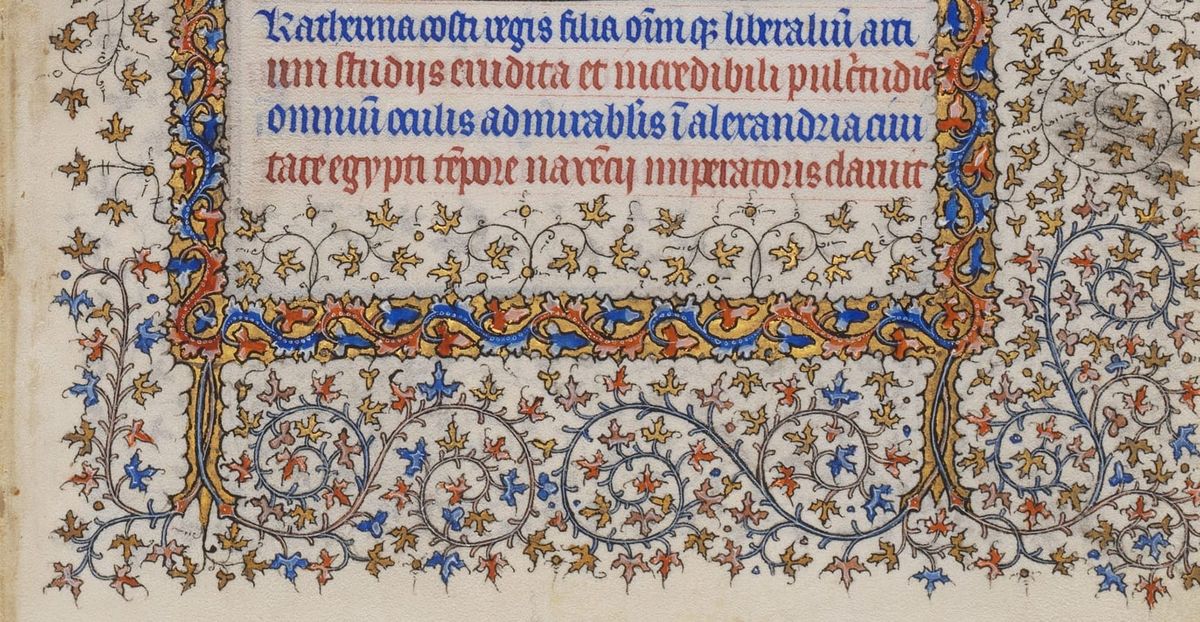 Katherina costi regis filia oīm qȝ liberaliū arti
um studijs erudita et incredibili pulc̄tudīe
omniū oculis admirablīs ī alexandria ciui
tate egypti tēpore maxēcij imperatoris claruit